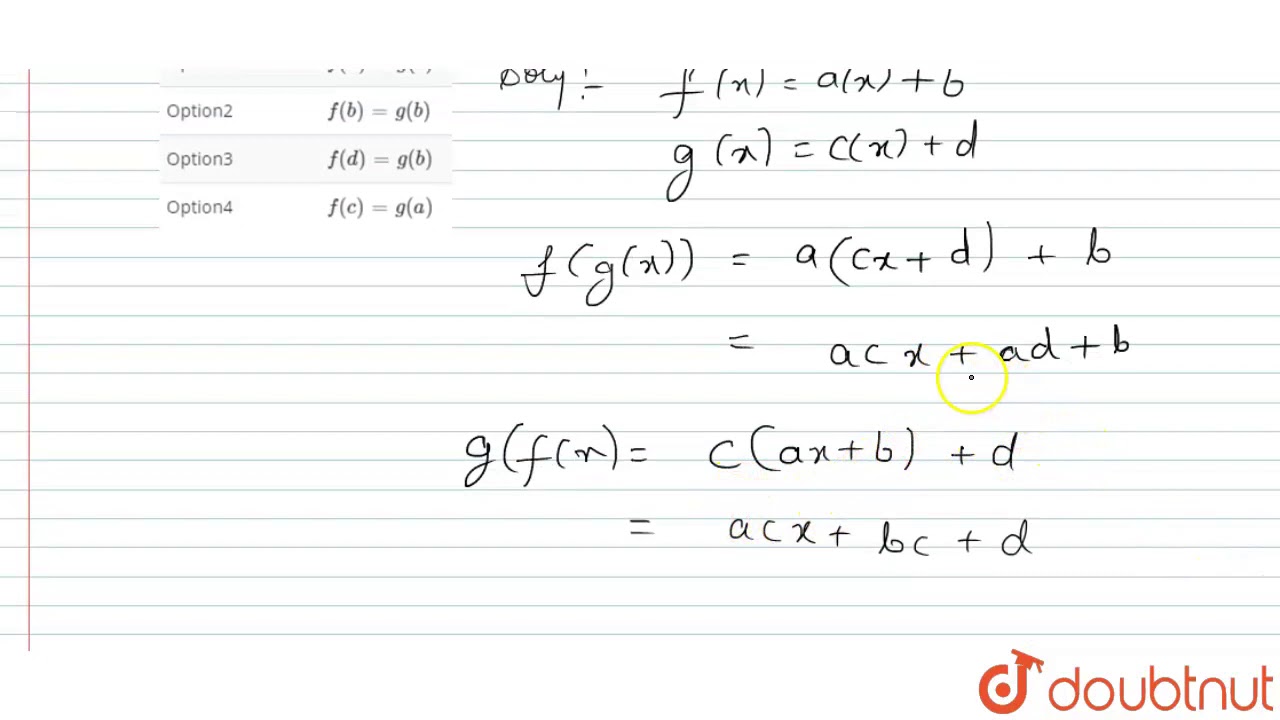 Soln :- f(x) = a(x) + b
Option2 f(b) = g(b)
g(x) = c(x) + d
Option3 f(d) = g(b)
Option4 f(c) = g(a)
f(g(x)) = a(cx + d) + b
= acx + ad + b
g(f(x) = c(ax + b) + d
= acx + bc + d
doubtnut